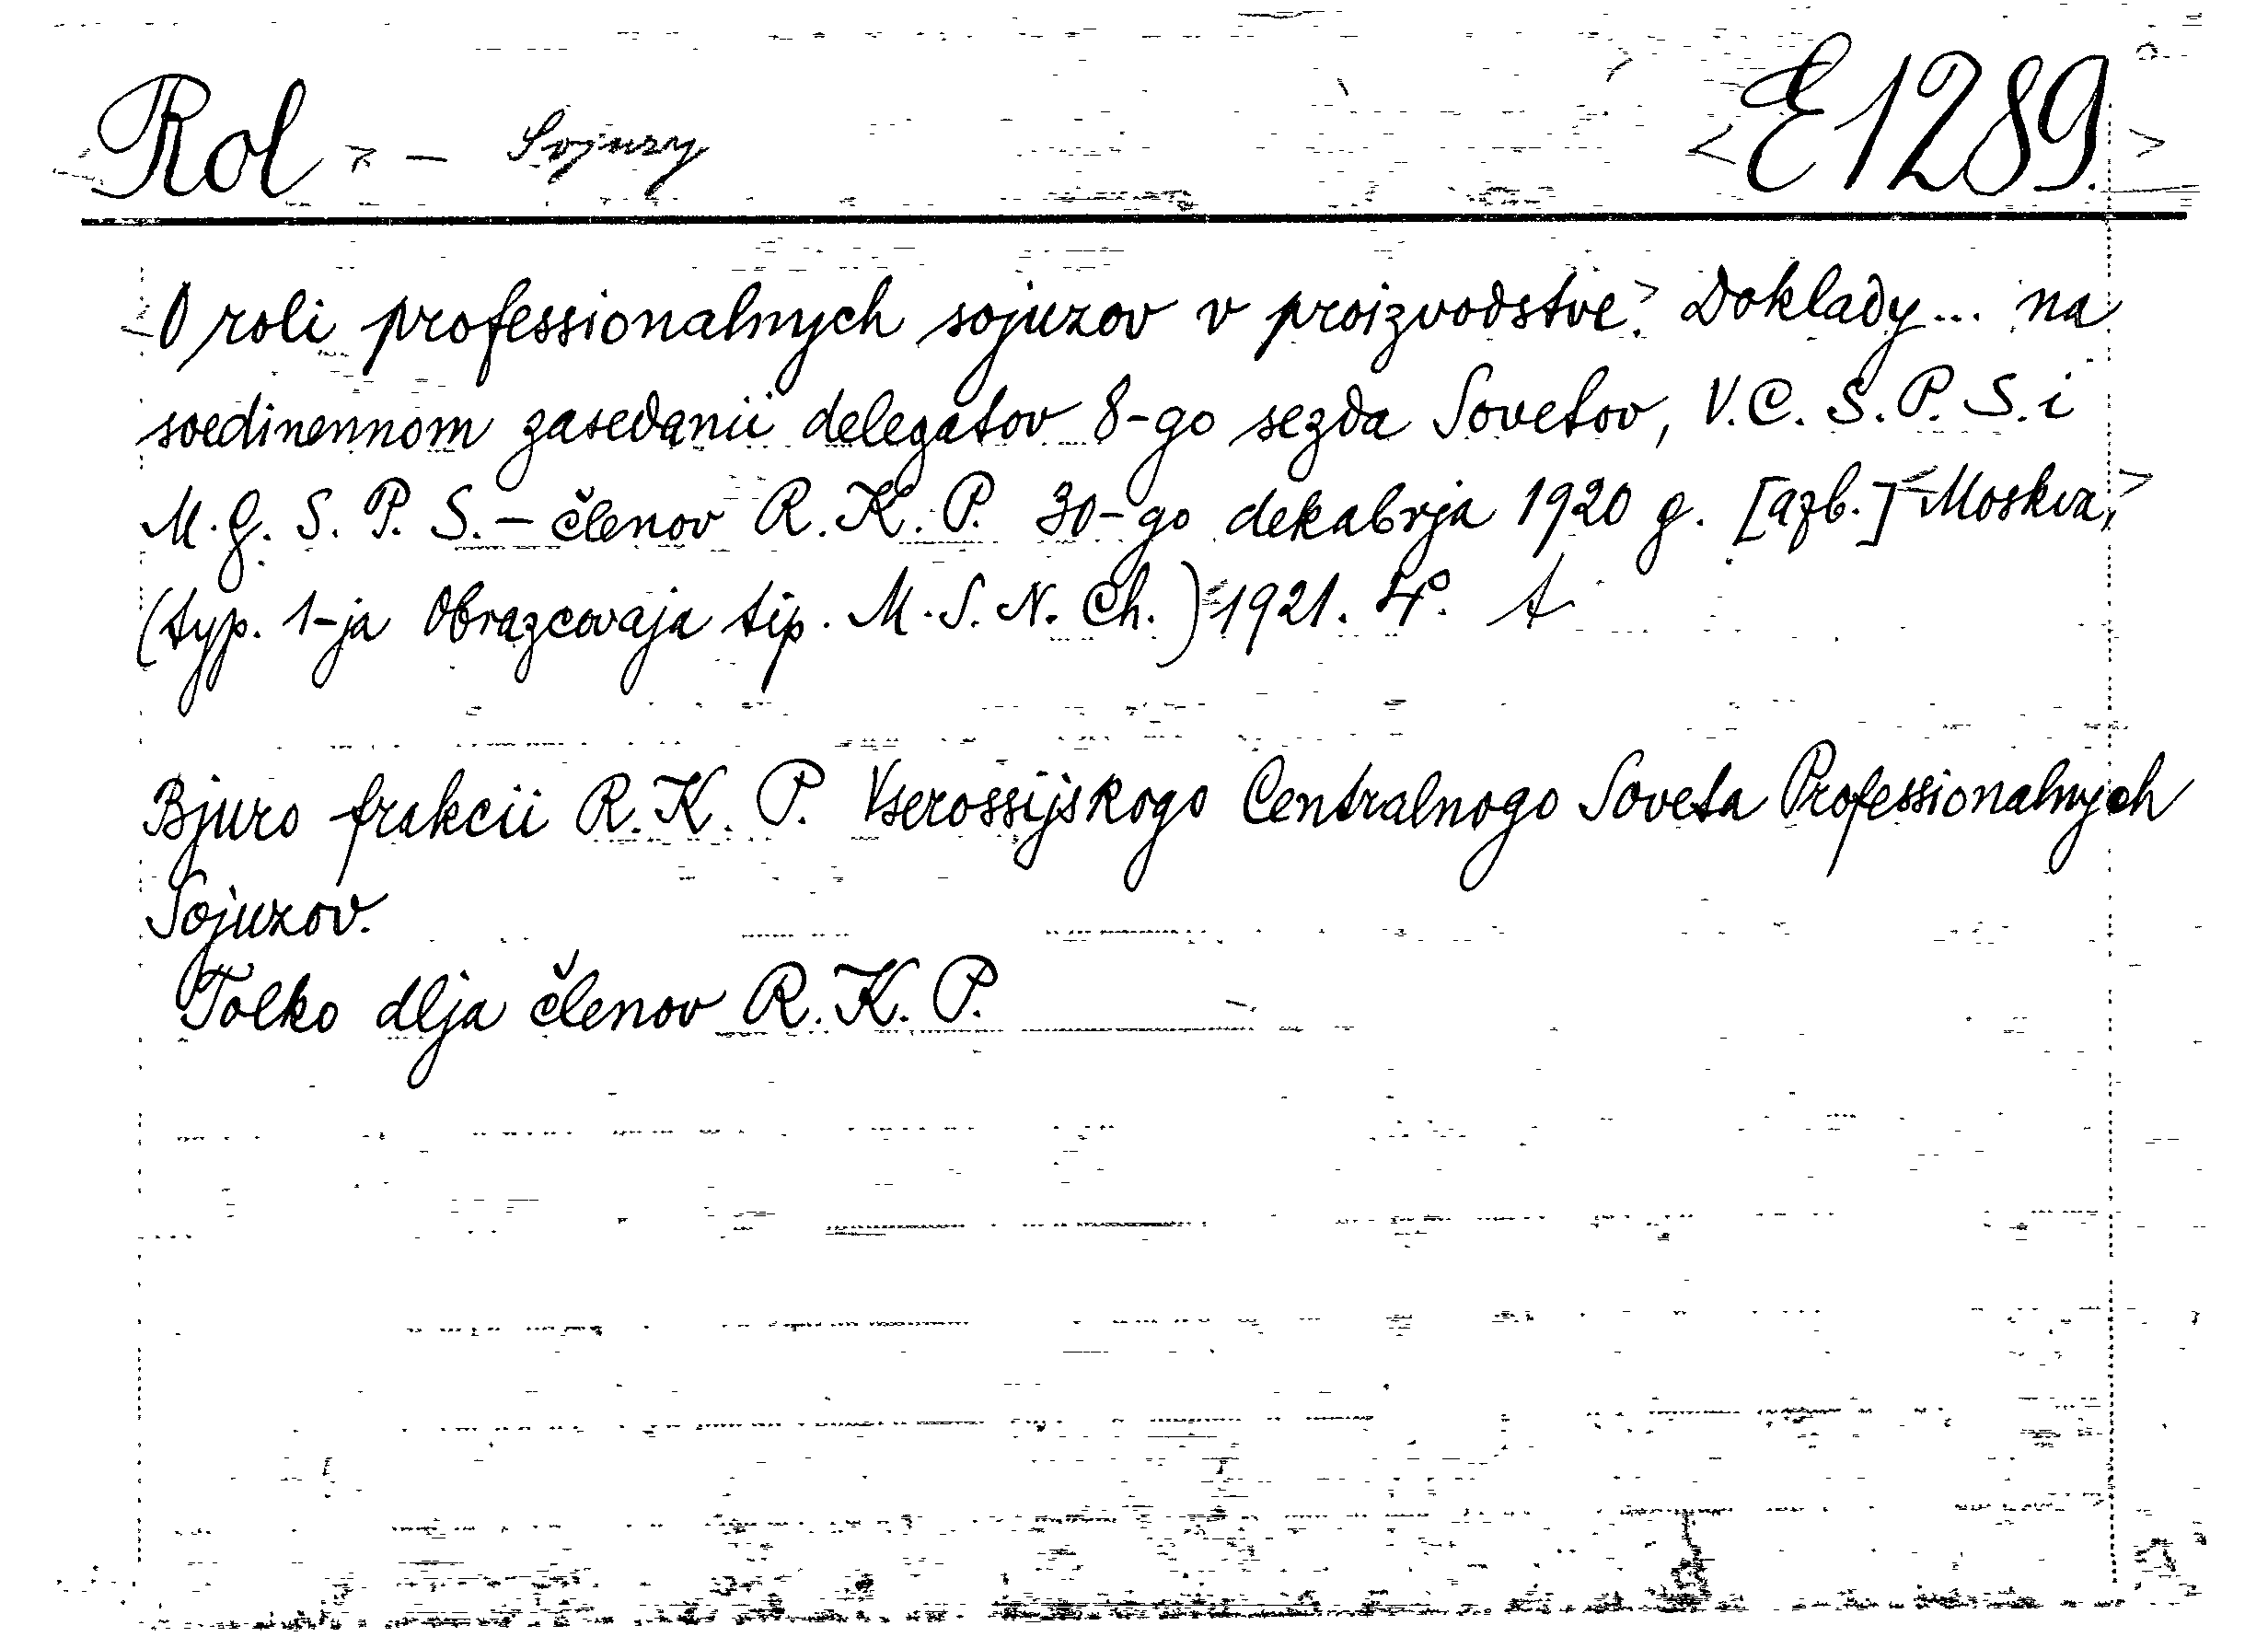 Rol - Sojuzy <E1289.>
<O roli professionalnych sojuzov v proizvodstve.> Doklady... na
soedinennom zasedanii delegatov 8-go sezda Sovetov, V.C.S.P.S. i
M.G.S.P.S. - členov R.K.P. 30-go dekabrja 1920 g. [azb.] <Moskva,>
(typ. 1-ja Obrazcovaja tip. M.S.N.Ch.) 1921. 4°. t
Bjuro frakcii R.K.P. Vserossijskogo Centralnogo Soveta Professionalnych
Sojuzov.
Tolko dlja členov R.K.P.